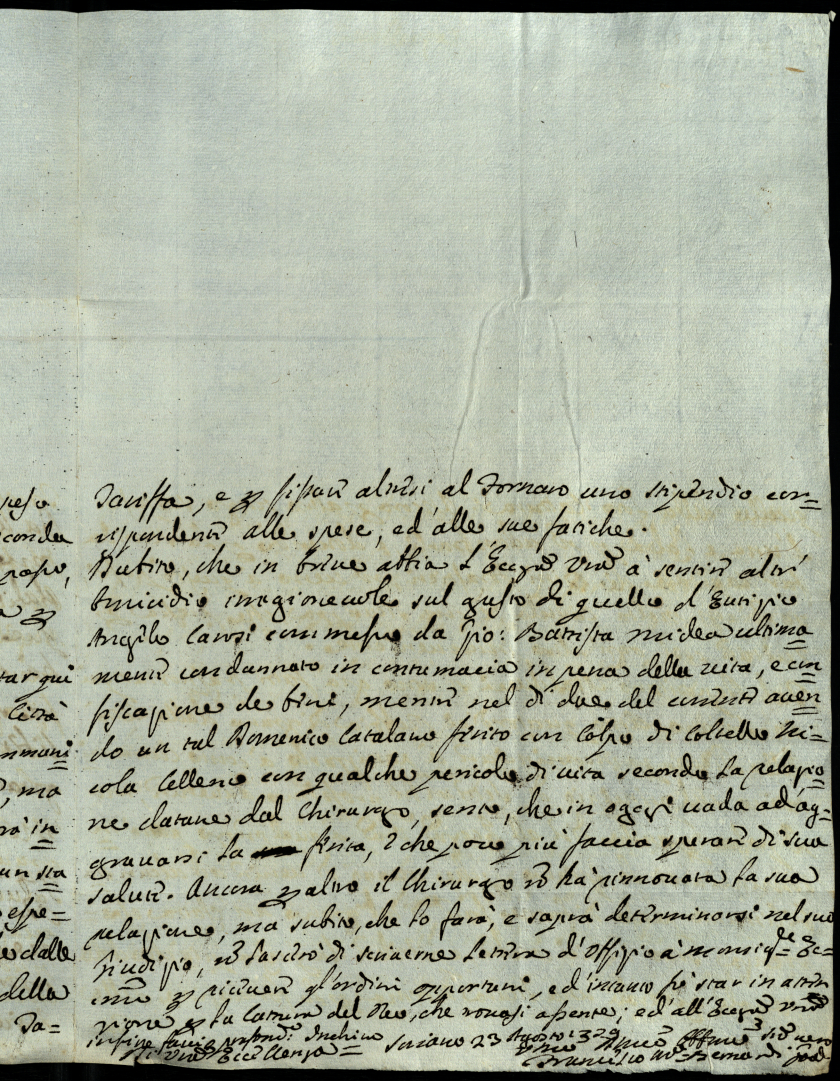 peso
conda
tar qui
Città
ma
rà in
un sta
espe=
e dalle
della
Ta=
Tariffa, e fissare altresì al Fornaro uno stipendio cor=
rispondente alle spese, ed' alle sue fatiche.
Dubito, che in breve abbia l'Ecc. Vra à sentire altri
Omicidio irragionevole sul gusto di quello d' Eutizio
Angelo Carosi commesso da Gio: Battista Midea ultima=
mente condannato in contumacia in pena della vita, e con=
fiscazione de beni, mentre nel dì due del corrente aven=
do un tal Domenico Catalano ferito con Colpo di Coltello Ni=
cola Celleno con qualche pericolo di vita secondo la relazio=
ne datane dal Chirurgo, sento, che in oggi vada ad'ag=
gravarsi la ferita, e che poco più faccia sperare di sua
salute. Ancora altro il Chirurgo nō hà rinnovata la sua
relazione, ma subito, che lo farà, e saprà determinarsi nel suo
Giudizio, nō lascerò di scriverne lettera d'Offizio à Monsig.re Ec=
ricevere gl'ordini opportuni, ed intanto fò star in atten=
zione la Cattura del Reo, che trovasi assente; ed all'Ecc. Vra
infine faccio Inchino
Di Vra Eccellenza= Soriano 23 Agosto
Francesco